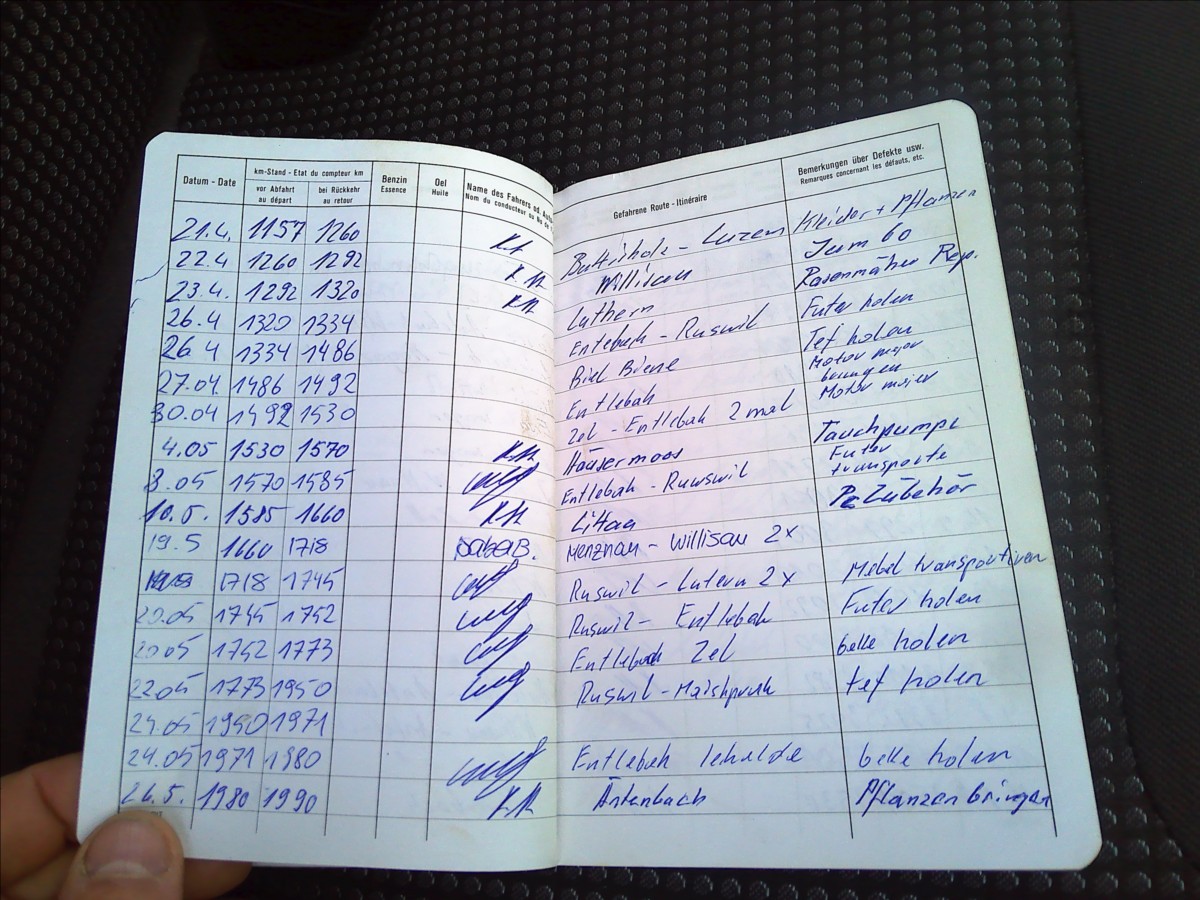 Datum - Date km-Stand - Etat du compteur km Benzin Oel Name des Fahrers od. Gefahrene Route - Itinéraire Bemerkungen über Defekte usw.
vor Abfahrt bei Rückkehr Essence Huile Nom du conducteur ou Remarques concernant les défauts, etc.
au départ au retour
21.4. 1157 1260 Buttisholz - Luzern Kleider + Pflanzen
22.4 1260 1292 K.M. Willisau Jum bo
23.4. 1292 1320 K.M. Luthern Rasenmäher Rep.
26.4 1320 1334 Entlebuch - Ruswil Futer holen
26.4 1334 1486 Biel Biene Tef holen
27.04 1486 1492 Entlebah Motor majer
bringen
30.04 1492 1530 Zel - Entlebah 2 mal Motor majer
4.05 1530 1570 K.M. Häusermoos Tauchpumpe
8.05 1570 1585 Entlebah - Ruswil Futer
transporte
10.5. 1585 1660 K.M. Littau Pc Zübehör
19.5 1660 1718 Menznau - Willisau 2x
1718 1745 Ruswil - Lutern 2x Mebel transportiren
20.05 1745 1752 Ruswil - Entlebah Futer holen
20.05 1752 1773 Entlebuch Zel belle holen
22.05 1773 1950 Ruswil - tef holen
24.05 1950 1971
24.05 1971 1980 Entlebah belle holen
26.5. 1980 1990 K.M. Äntenbach Pflanzen bringen